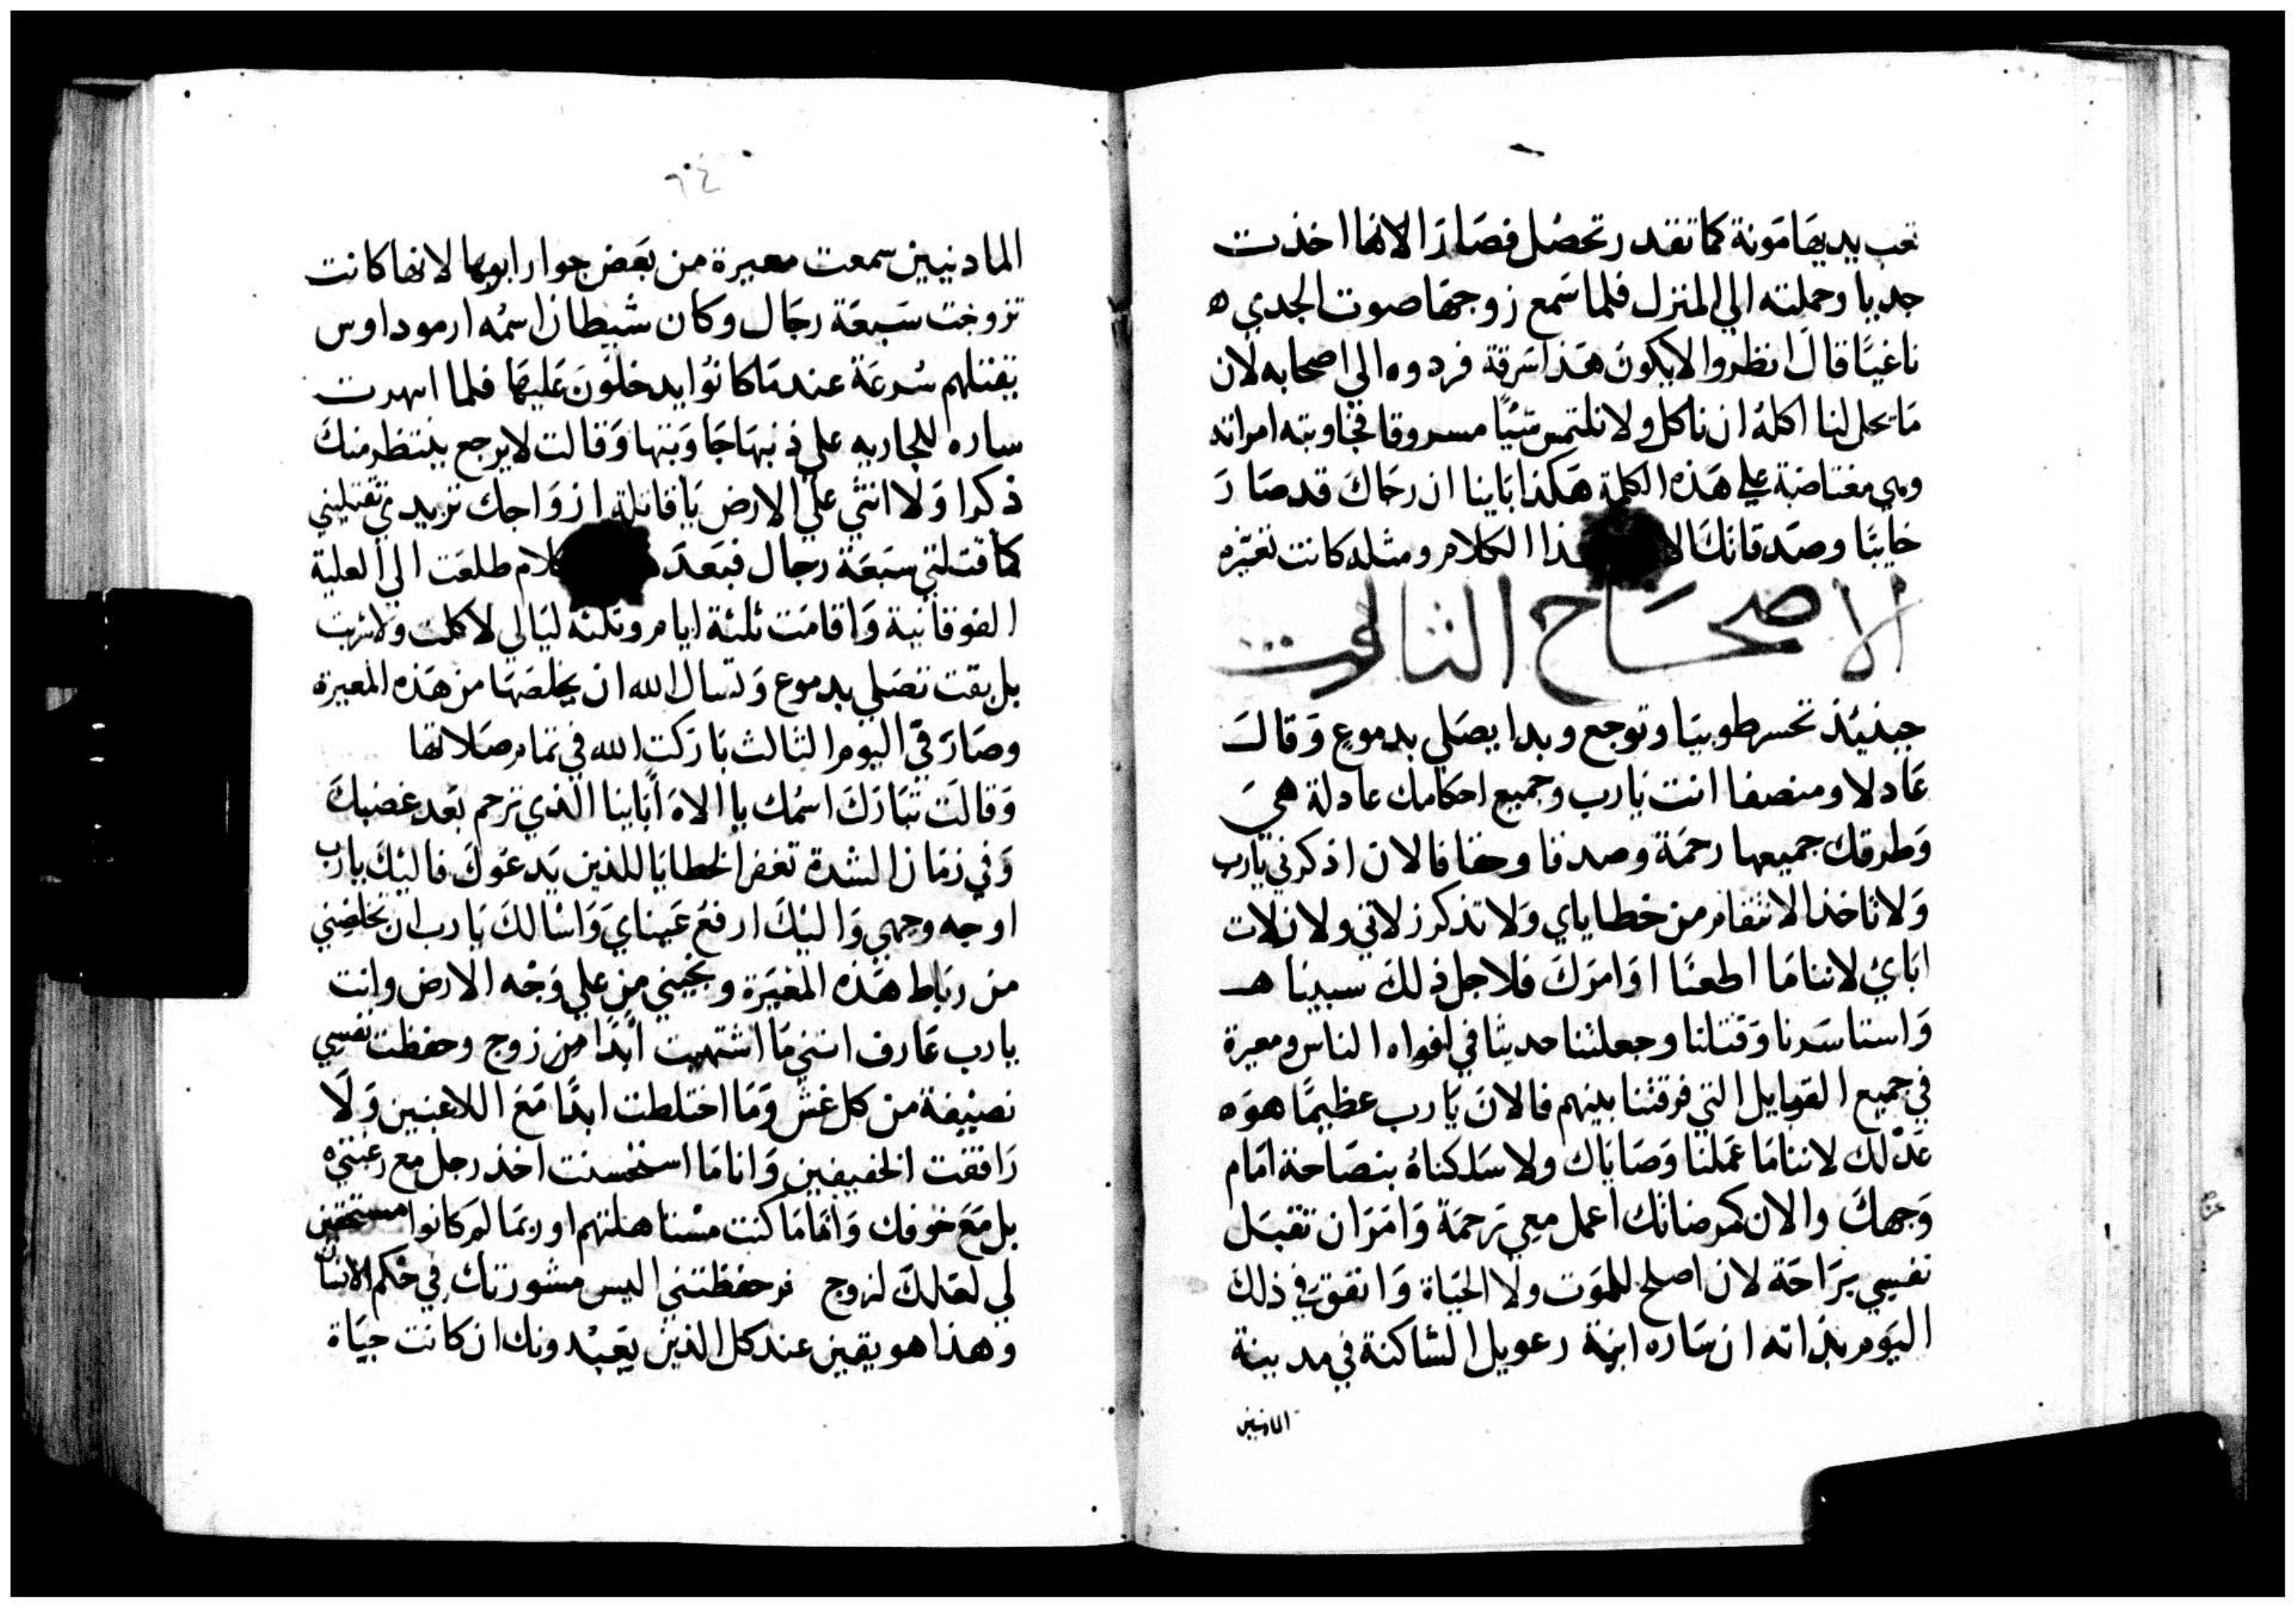 تعب يديها مونة كما تقدر تحصل فصار الانها اخذت
جديا وحملته الي المنزل فلما سمع زوجها صوت الجدي ه
ناغيًا قال انظروا لايكون هذا سرقة فردوه الي اصحابه لان
ما يحل لنا اكلهُ ان ناكل ولا نلتمس شيًا مسروقا فجاوبته امراته
وهي مغتاضة علي هذه الكلمة هكذا باينا ان رجاك قد صار
خايبًا وصدقاتك الا ذا الكلام ومثله كانت تغيره
الاصحاح الثالث
حينيذ تحسر طوبيا وتوجع وبدا يصلي بدموع وقال
عادلا ومنصفا انت يارب وجميع احكامك عادلة هي
وطرقك جميعها رحمة وصدقا وحقا فالان اذكرني يارب
ولا تاخذ الانتقام من خطاياي ولا تذكر زلاتي ولا زلات
اباي لاننا ما اطعنا اوامرك فلاجل ذلك سبينا هـ
واستاسرنا وقتلنا وجعلتنا حديثا في افواه الناس ومعيرة
في جميع القبايل التي فرقتنا بينهم فالان يارب عظيمًا هوه
عدلك لاننا ما عملنا وصاياك ولا سلكناهُ بنصاحة امام
وجهك والان كمرضاتك اعمل معي رحمة وامر ان تقبل
نفسي براحة لان اصلح للموت ولا الحياة واتفق في ذلك
اليوم بذاته ان ساره ابنة رعويل الساكنة في مدينة
المادنيين
٦٠٤
المادنيين سمعت معيرة من بعض جوار ابويها لانها كانت
تزوجت سبعة رجال وكان شيطان اسمُه ارموداوس
يقتلهم سرعة عندما كانوا يدخلون عليها فلما انهرت
ساره للجاريه علي ذنبها جاوبتها وقالت لا يرجع ينتظر منك
ذكرا ولا انثي علي الارض يا قاتلة ازواجك تريدي تقتليني
كما قتلتي سبعة رجال فبعد كلام طلعت الي العلية
الفوقانية واقامت ثلثة ايام وثلثه ليالي لا اكلت ولا شربت
بل بقت تصلي بدموع وتسال الله ان يخلصها من هذه المعيرة
وصار في اليوم الثالث باركت الله في تمام صلاتها
وقالت تبارك اسمك يا الاه أباينا الذي ترحم بعد غضبك
وفي زمان الشدة تغفر الخطايا للذين يدعوك فاليك يارب
اوجه وجهي واليك ارفع عيناي واسالك يارب ان تخلصني
من رباط هذه المعيرة وتجيني من علي وجه الارض وانت
يارب عارف انني ما اشتهيت ابدًا من زوج وحفظت نفسي
نصيفة من كل غش وما اختلطت ابدًا مع اللاعبين ولا
رافقت الخفيفين وانا ما استحسنت اخذ رجل مع رغبتيه
بل مع خوفك واما ما كنت مستاهلتهم او ربما لم كانوا مستحقين
لي لعلك لزوج فرحفظتني اليس مشورتك في حكم الانسان
وهذا هو يقين عند كل الذين يعبدونك ان كانت حياة